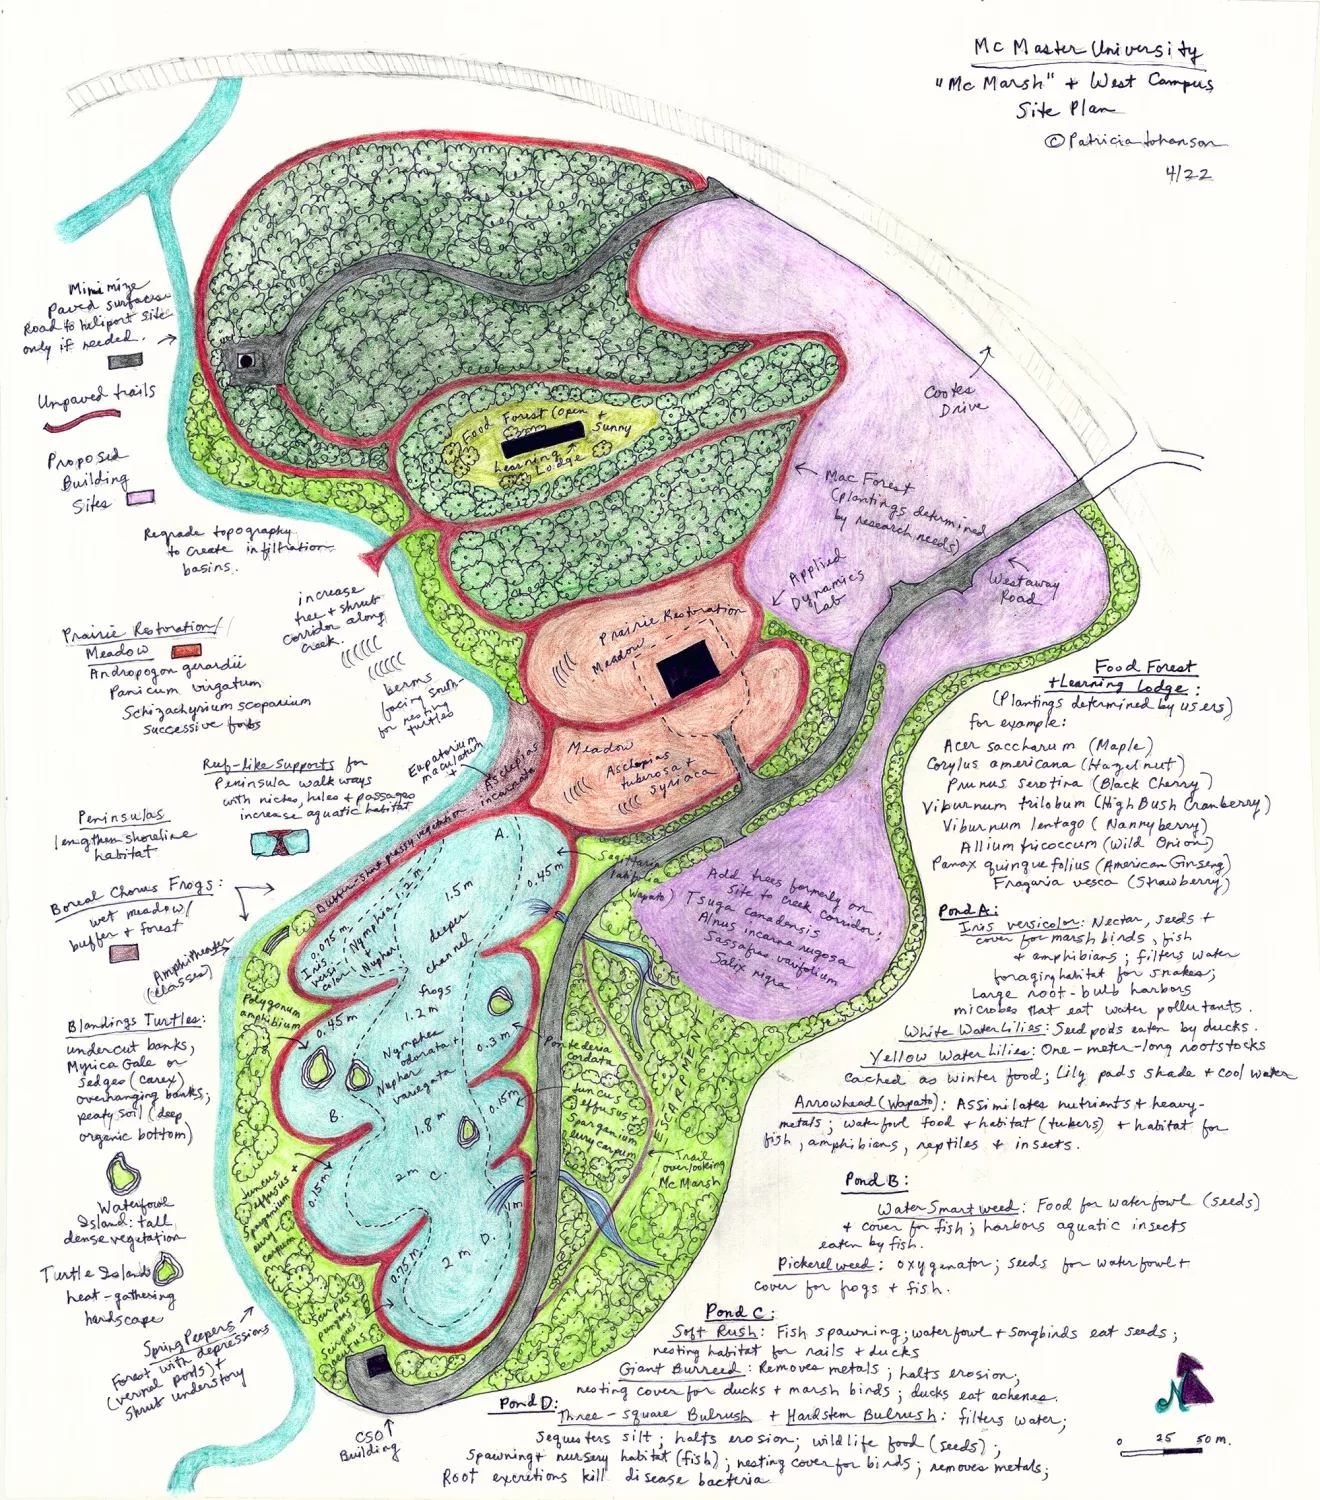 McMaster University
"McMarsh" + West Campus
Site Plan
©Patricia Johanson
4/22
Minimize
Paved surfaces
Road to heliport site
only if needed.
Unpaved trails
Proposed
Building
Sites
Regrade topography
to create infiltration
basins.
increase
tree + shrub
corridor along
creek.
berms
facing south-
for nesting
turtles
Prairie Restoration/
Meadow
Andropogon gerardii
Panicum virgatum
Schizachyrium scoparium
successive forbs
Eupatorium
maculatum
+
Asclepias
incarnata
Reef-like supports for
Peninsula walkways
with niches, holes + passages
increase aquatic habitat
Peninsulas
lengthen shoreline
habitat
Boreal Chorus Frogs:
wet meadow/
buffer + forest
Amphitheater
(classes)
Blandings Turtles:
undercut banks,
Myrica Gale or
sedges (carex)
overhanging banks;
peaty soil (deep
organic bottom)
Waterfowl
Island: tall
dense vegetation
Turtle Island
heat-gathering
hardscape
Spring Peepers
Forest with depressions
(vernal pools) +
shrub understory
CSO
Building
Food Forest (open +
Sunny
Learning
Lodge
Cootes
Drive
Mac Forest
(plantings determined
by research needs)
Applied
Dynamics
Lab
Westaway
Road
Prairie Restoration
Meadow
Meadow
Asclepias
tuberosa +
syriaca
Buffer-short grassy vegetation
A.
1.2 m
1.5 m
0.45 m
Sagittaria
latifolia
(Wapato)
0.75 m
Iris
versi-
color
Nymphea
Nuphar
deeper
channel
frogs
1.2 m
Polygonum
amphibium
0.45 m
Nymphea
odorata +
Nuphar
variegata
0.3 m
Pontederia
cordata
B.
0.15 m
Juncus
effusus +
Sparganium
eurycarpum
1.8 m
2m
C.
Juncus
effusus +
Sparganium
eurycarpum
0.15m
1m
D.
0.75 m
2 m
Scirpus
pungens
Scirpus
acutus
Add trees formerly on
site to creek corridor:
Tsuga canadensis
Alnus incana rugosa
Sassafras varifolium
Salix nigra
ESCARPMENT
Trail
overlooking
McMarsh
Food Forest
+ Learning Lodge:
(Plantings determined by users)
for example:
Acer saccharum (Maple)
Corylus americana (Hazelnut)
Prunus serotina (Black Cherry)
Viburnum trilobum (High Bush Cranberry)
Viburnum lentago (Nannyberry)
Allium tricoccum (Wild Onion)
Panax quinquefolius (American Ginseng)
Fragaria vesca (Strawberry)
Pond A:
Iris versicolor: Nectar, seeds +
cover for marsh birds, fish
+ amphibians; filters water
foraging habitat for snakes;
Large root-bulb harbors
microbes that eat water pollutants.
White Water Lilies: Seed pods eaten by ducks.
Yellow Water Lilies: One-meter-long rootstocks
cached as winter food; Lily pads shade + cool water
Arrowhead (Wapato): Assimilates nutrients + heavy-
metals; waterfowl food + habitat (tubers) + habitat for
fish, amphibians, reptiles + insects.
Pond B:
Water Smartweed: Food for waterfowl (seeds)
+ cover for fish; harbors aquatic insects
eaten by fish.
Pickerelweed: oxygenator; seeds for waterfowl +
cover for frogs + fish.
Pond C:
Soft Rush: Fish spawning; waterfowl + songbirds eat seeds;
nesting habitat for rails + ducks
Giant Burreed: Removes metals; halts erosion;
nesting cover for ducks + marsh birds; ducks eat achenes.
Pond D:
Three-square Bulrush + Hardstem Bulrush: filters water;
sequesters silt; halts erosion; wildlife food (seeds);
spawning + nursery habitat (fish); nesting cover for birds; removes metals;
Root excretions kill disease bacteria
N
0 25 50 m.